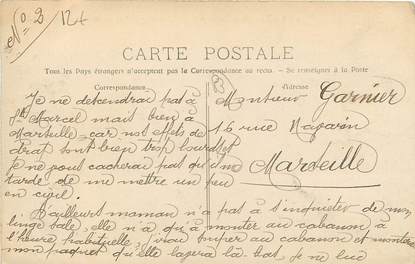 No 2
CARTE POSTALE
Tous les Pays étrangers n'acceptent pas la Correspondance au recto. - Se renseigner à la Poste
Correspondance
Je ne descendrai pas à
St Marcel mais bien à
Marseille car nos effets de
drat sont bien trop lourds
Je ne vous cacherai pas qu'il me
tarde de me mettre un peu
en civil.
Adresse
Monsieur Garnier
16 rue
Marseille
D'ailleurs maman n'a pas à s'inquiéter de mon
linge sale, elle n'a qu'à monter au cabanon à
l'heure habituelle, j'irai souper au cabanon et monterai
mon paquet qu'elle lavera là-bas je ne lui